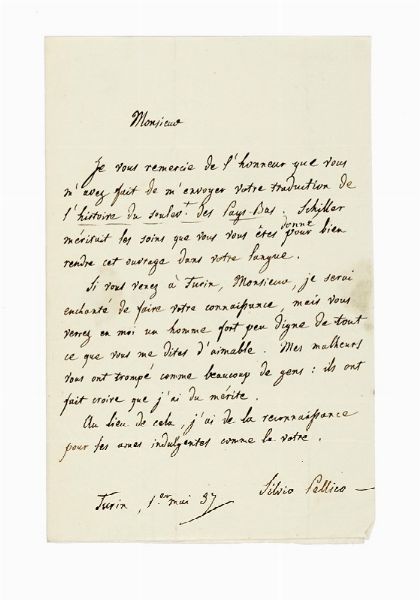 Monsieur
Je vous remercie de l'honneur que vous
m'avez fait de m'envoyer votre traduction de
l'histoire du soulevt. des Pays-Bas. Schiller
donné
méritait les soins que vous vous êtes pour bien
rendre cet ouvrage dans votre langue.
Si vous venez à Turin, Monsieur, je serai
enchanté de faire votre connaissance, mais vous
verrez en moi un homme fort peu digne de tout
ce que vous me dites d'aimable. Mes malheurs
vous ont trompé comme beaucoup de gens : ils ont
fait croire que j'ai du mérite.
Au lieu de cela, j'ai de la reconnaissance
pour les ames indulgentes comme la votre.
Silvio Pellico
Turin, 1.er mai 37